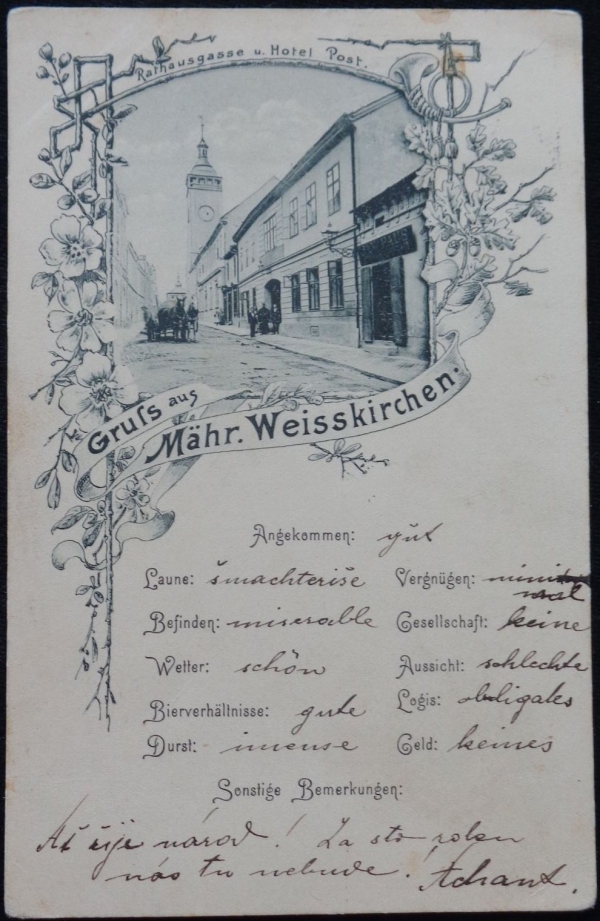 Rathausgasse u. Hotel Post.
Gruſs aus
Mähr. Weisskirchen.
Angekommen: gut
Laune: šmachteriše Vergnügen: minimal
Befinden: miserable Gesellschaft: keine
Wetter: schön Aussicht: schlechte
Bierverhältnisse: gute Logis: obligates
Durst: imense Geld: keines
Sonstige Bemerkungen:
Ať žije národ! Za sto roků
nás tu nebude!